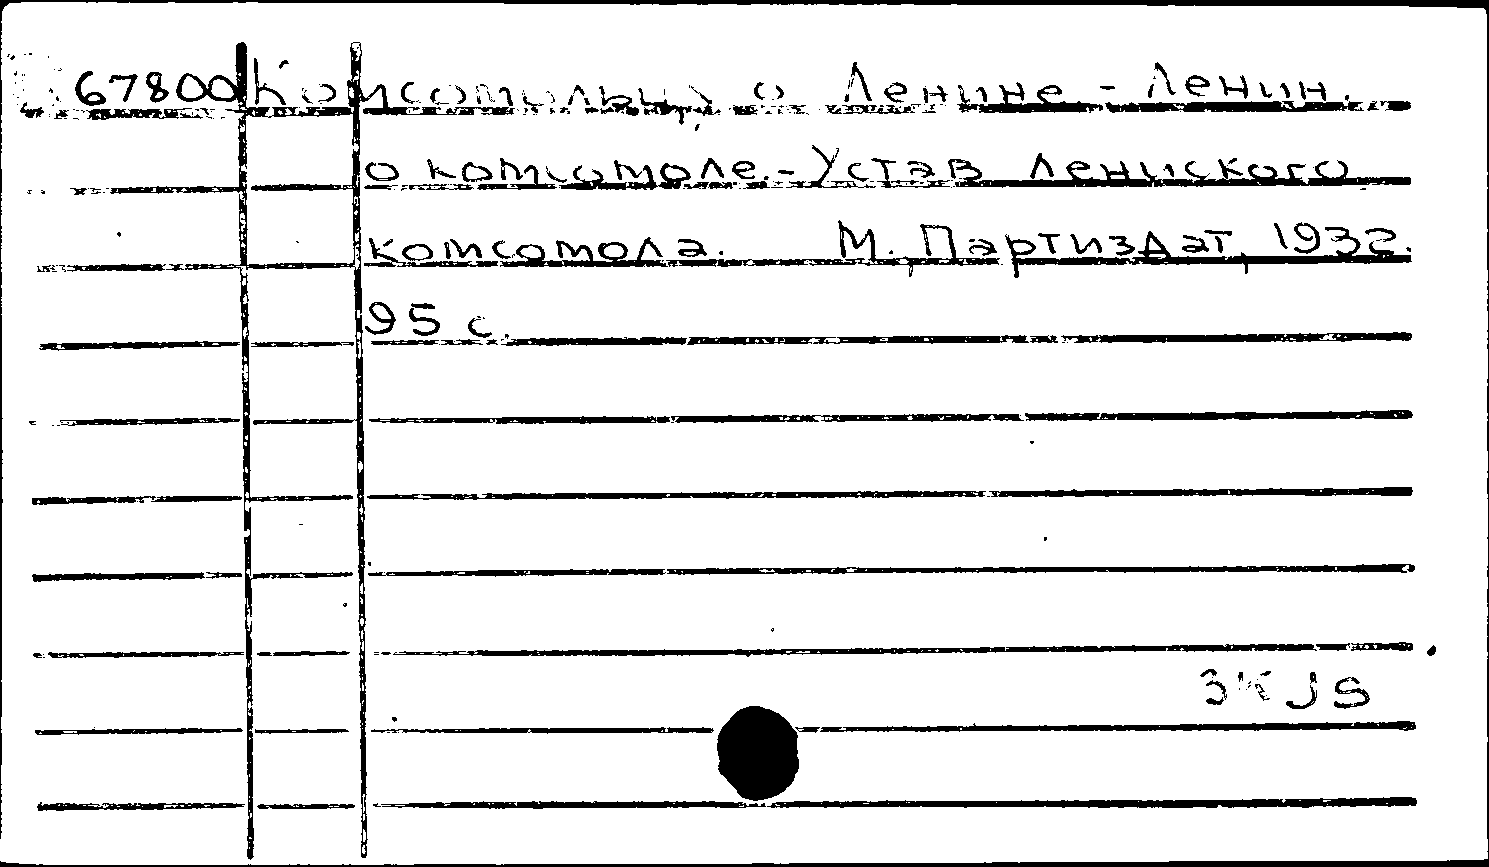 67800 Комсомольцу о Ленине - Ленин.
о комсомоле. - Устав Лениского
комсомола. М., Партиздат, 1932.
95 с.
3К JS